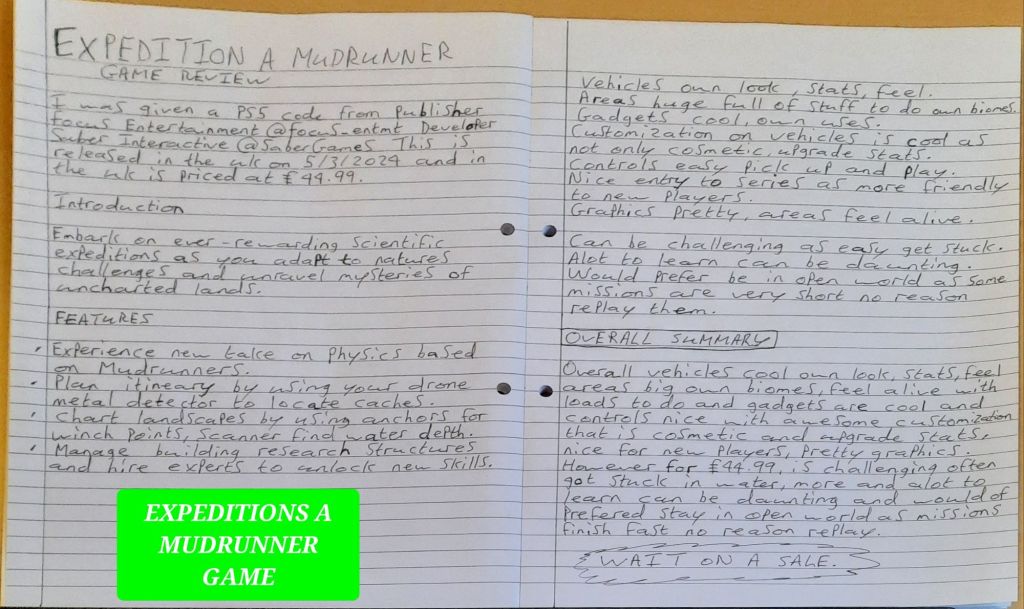 EXPEDITION A MUDRUNNER
GAME REVIEW
I was given a PS5 code from Publisher
Focus Entertainment @focus_entmt Developer
Saber Interactive @SaberGames This is
released in the uk on 5/3/2024 and in
the uk is priced at £44.99.
Introduction
Embark on ever-rewarding scientific
expeditions as you adapt to natures
challenges and unravel mysteries of
uncharted lands.
FEATURES
• Experience new take on Physics based
on Mudrunners.
• Plan itineary by using your drone
metal detector to locate caches.
• Chart landscapes by using anchors for
winch Points, Scanner find water depth.
• Manage building research structures
and hire experts to unlock new skills.
EXPEDITIONS A
MUDRUNNER
GAME
Vehicles own look, stats, feel.
Areas huge full of stuff to do own biomes.
Gadgets cool, own uses.
Customization on vehicles is cool as
not only cosmetic, upgrade stats.
Controls easy Pick up and Play.
Nice entry to series as more friendly
to new Players.
Graphics Pretty, areas feel alive.
Can be challenging as easy get stuck.
Alot to learn can be daunting.
Would Prefer be in open world as some
missions are very short no reason
replay them.
OVERALL SUMMARY
Overall vehicles cool own look, stats, feel
areas big own biomes, feel alive with
loads to do and gadgets are cool and
controls nice with awesome customization
that is cosmetic and upgrade stats,
nice for new Players, Pretty graphics.
However for £44.99, is challenging often
got stuck in water, more and alot to
learn can be daunting and would of
Prefered stay in open world as missions
finish fast no reason replay.
WAIT ON A SALE.